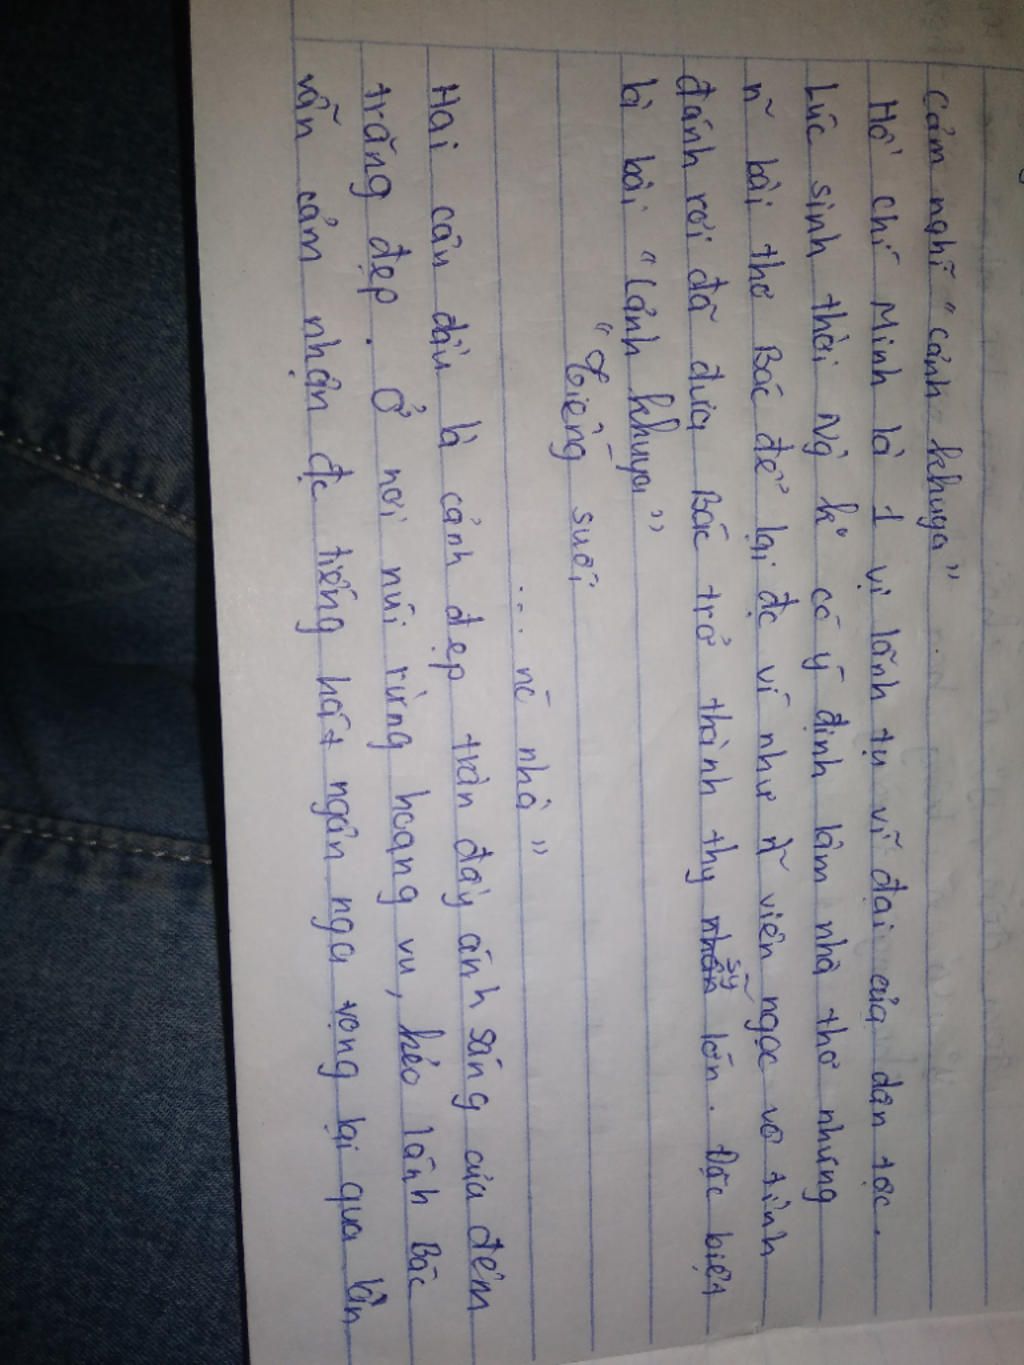 Cảm nghĩ "cảnh khuya"
Hồ chí Minh là 1 vị lãnh tụ vĩ đại của dân tộc.
Lúc sinh thời Ng k° có ý định làm nhà thơ nhưng
n~ bài thơ Bác để lại đc ví như n~ viên ngọc vô tình
đánh rơi đã đưa Bác trở thành thy sỹ lớn. Đặc biệt
là bài "Cảnh khuya"
"Tiếng suối
... nc nhà"
Hai câu đầu là cảnh đẹp tràn đầy ánh sáng của đêm
trăng đẹp. Ở nơi núi rừng hoang vu, hẻo lánh Bác
vẫn cảm nhận đc tiếng hát ngân nga vọng lại qua làn